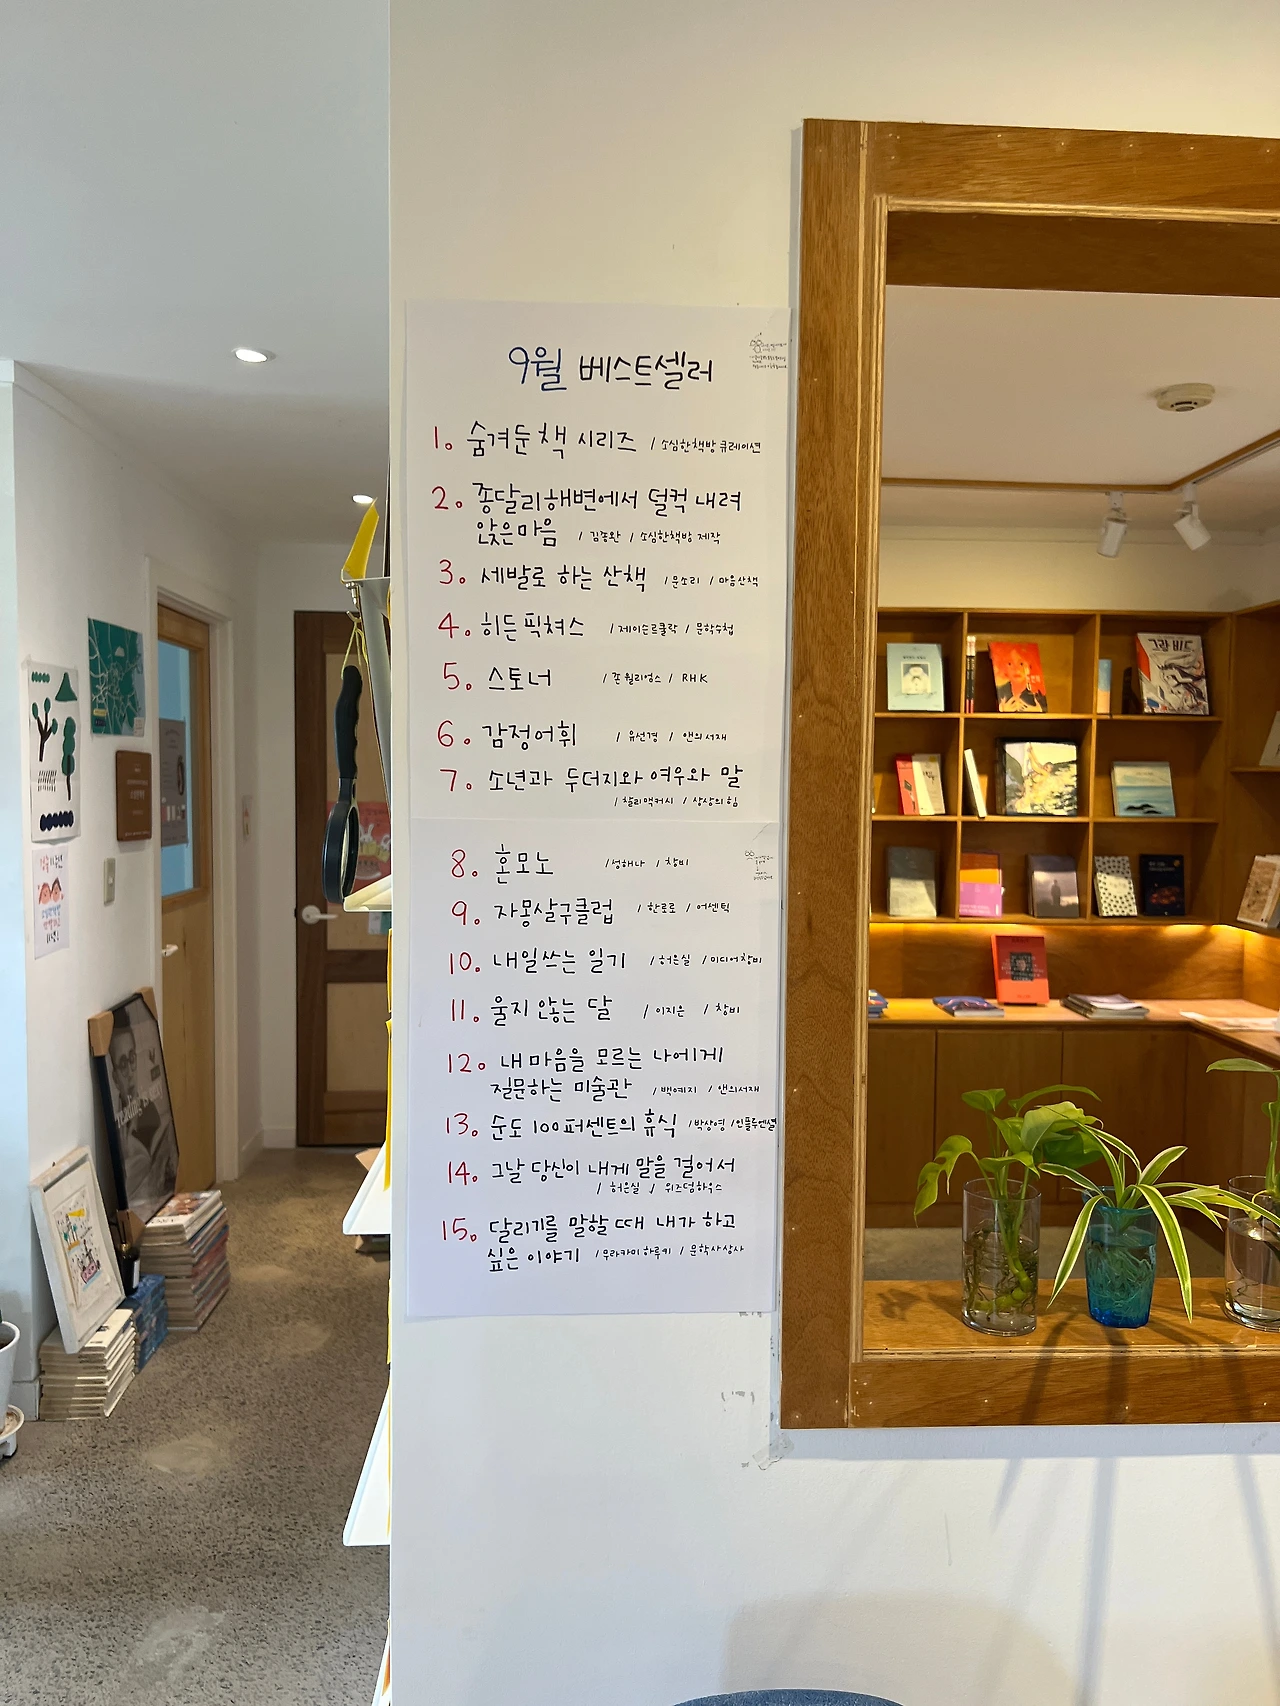 9월 베스트셀러
1. 숨겨둔 책 시리즈 / 소심한책방 큐레이션
2. 종달리해변에서 덜컥 내려
앉은마음 / 김종완 / 소심한책방 제작
3. 세발로 하는 산책 / 문소리 / 마음산책
4. 히든 픽쳐스 / 제이슨르쿨락 / 문학수첩
5. 스토너 / 존 윌리엄스 / RHK
6. 감정어휘 / 유선경 / 앤의 서재
7. 소년과 두더지와 여우와 말
/ 찰리맥커시 / 상상의힘
8. 혼모노 / 성해나 / 창비
9. 자몽살구클럽 / 한로로 / 어센틱
10. 내일쓰는 일기 / 허은실 / 미디어창비
11. 울지 않는 달 / 이지은 / 창비
12. 내 마음을 모르는 나에게
질문하는 미술관 / 백예지 / 앤의서재
13. 순도 100퍼센트의 휴식 / 박상영 / 인플루엔셜
14. 그날 당신이 내게 말을 걸어서
/ 허은실 / 위즈덤하우스
15. 달리기를 말할 때 내가 하고
싶은 이야기 / 무라카미 하루키 / 문학사상사
그랑 비드